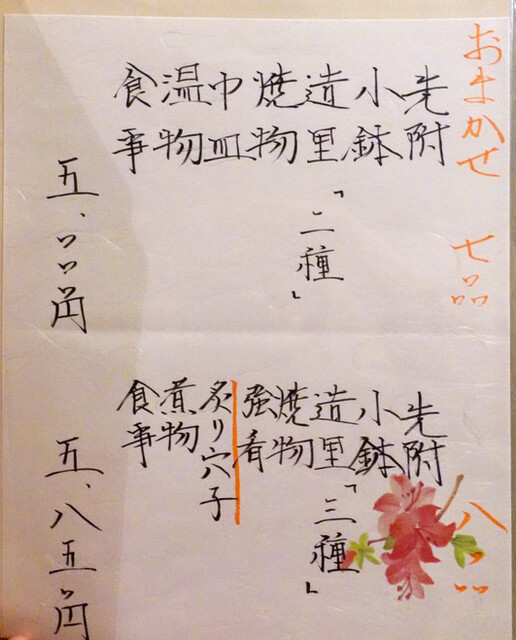 おまかせ 七品
先附
小鉢
造里「二種」
焼物
中皿
温物
食事
五、〇〇〇円
八品
先附
小鉢
造里「三種」
焼物
強肴
炙り穴子
煮物
食事
五、八五〇円